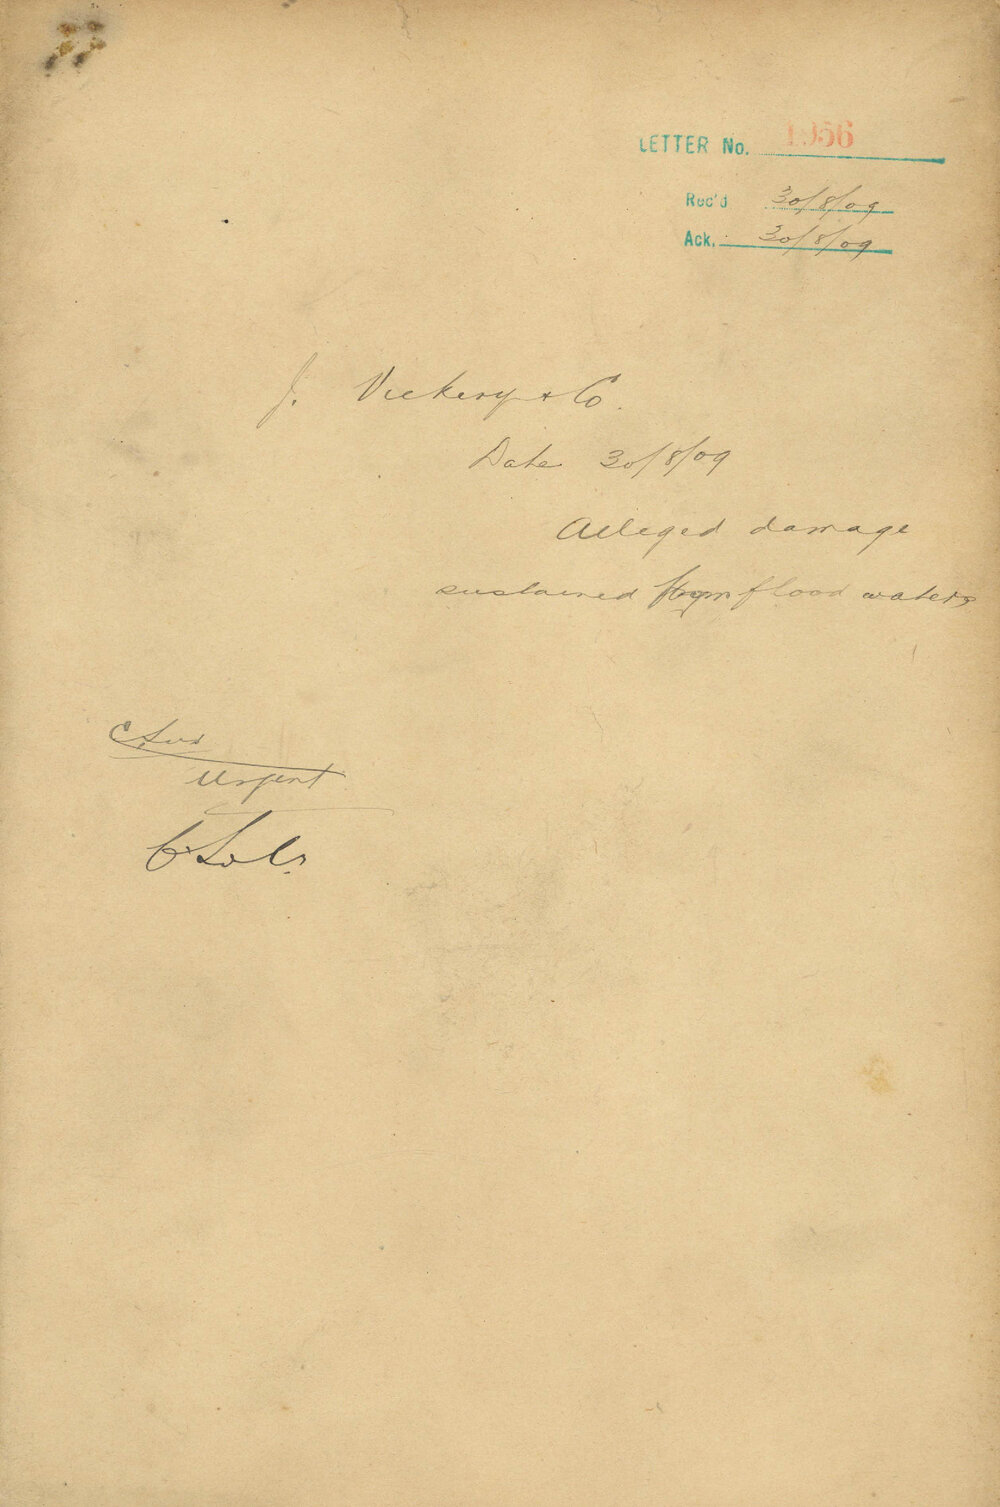 LETTER No. 1956
Rec'd 30/8/09
Ack. 30/8/09
J. Vickery & Co.
Date 30/8/09
Alleged damage
sustained from flood waters
Urgent